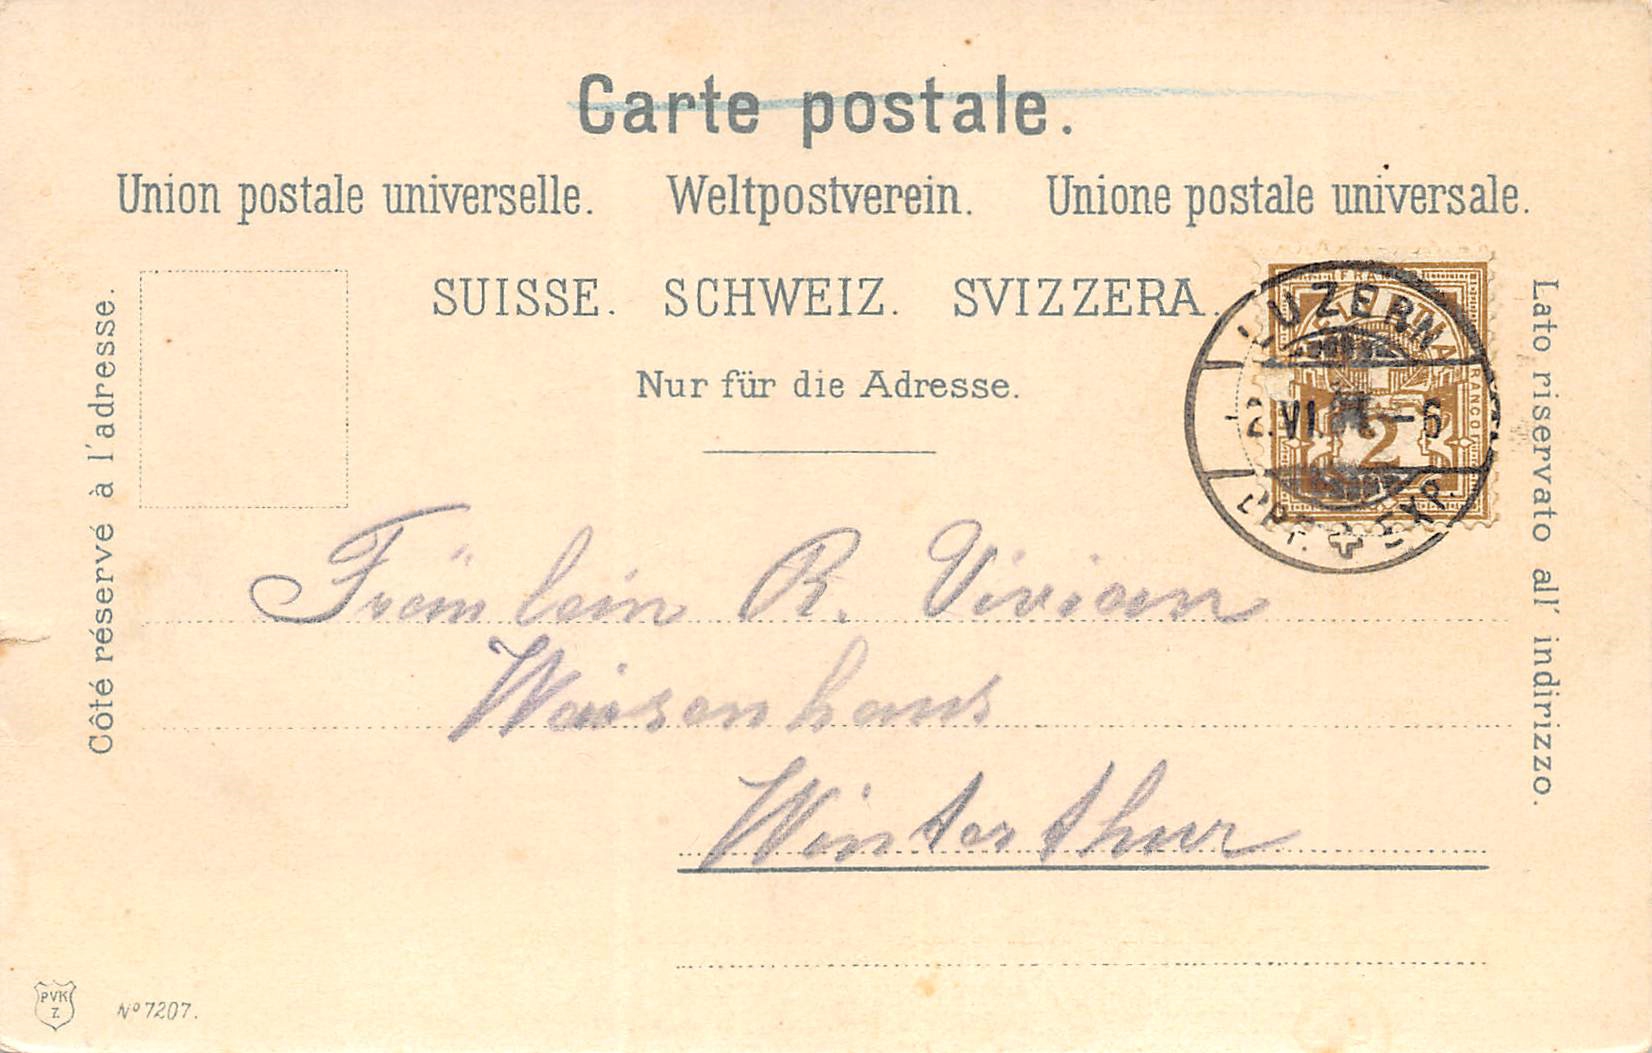 Carte postale.
Union postale universelle. Weltpostverein. Unione postale universale.
SUISSE. SCHWEIZ. SVIZZERA.
Nur für die Adresse.
Côté réservé à l'adresse.
Lato riservato all' indirizzo.
FRANCO
2
LUZERN
2.VI. -6
EXP.
Fräulein R. Vivian
Waisenhaus
Winterthur
PVK
Z.
No 7207.